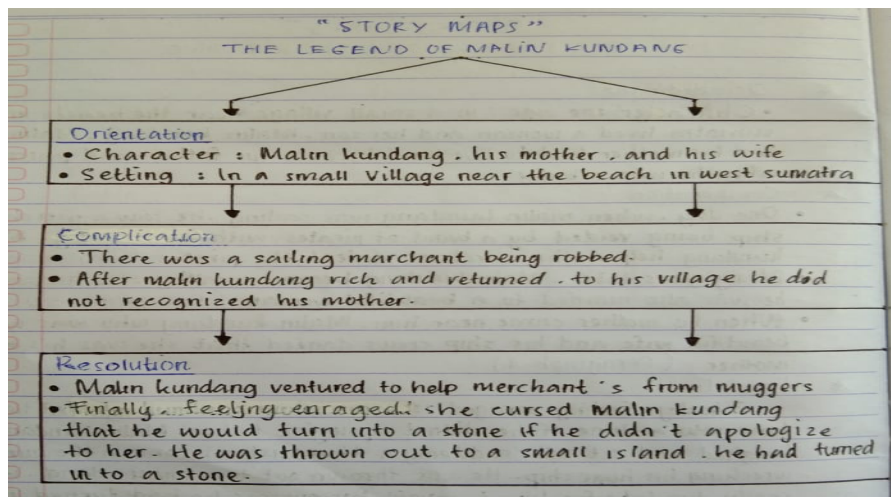 "STORY MAPS"
THE LEGEND OF MALIN KUNDANG
Orientation
• Character : Malin kundang . his mother . and his wife
• Setting : In a small village near the beach in west sumatra
Complication
• There was a sailing marchant being robbed.
• After malin kundang rich and returned . to his village he did
not recognized his mother.
Resolution
• Malin kundang ventured to help merchant's from muggers
• Finally . feeling enraged. she cursed Malin kundang
that he would turn into a stone if he didn't apologize
to her. He was thrown out to a small island . he had turned
in to a stone.